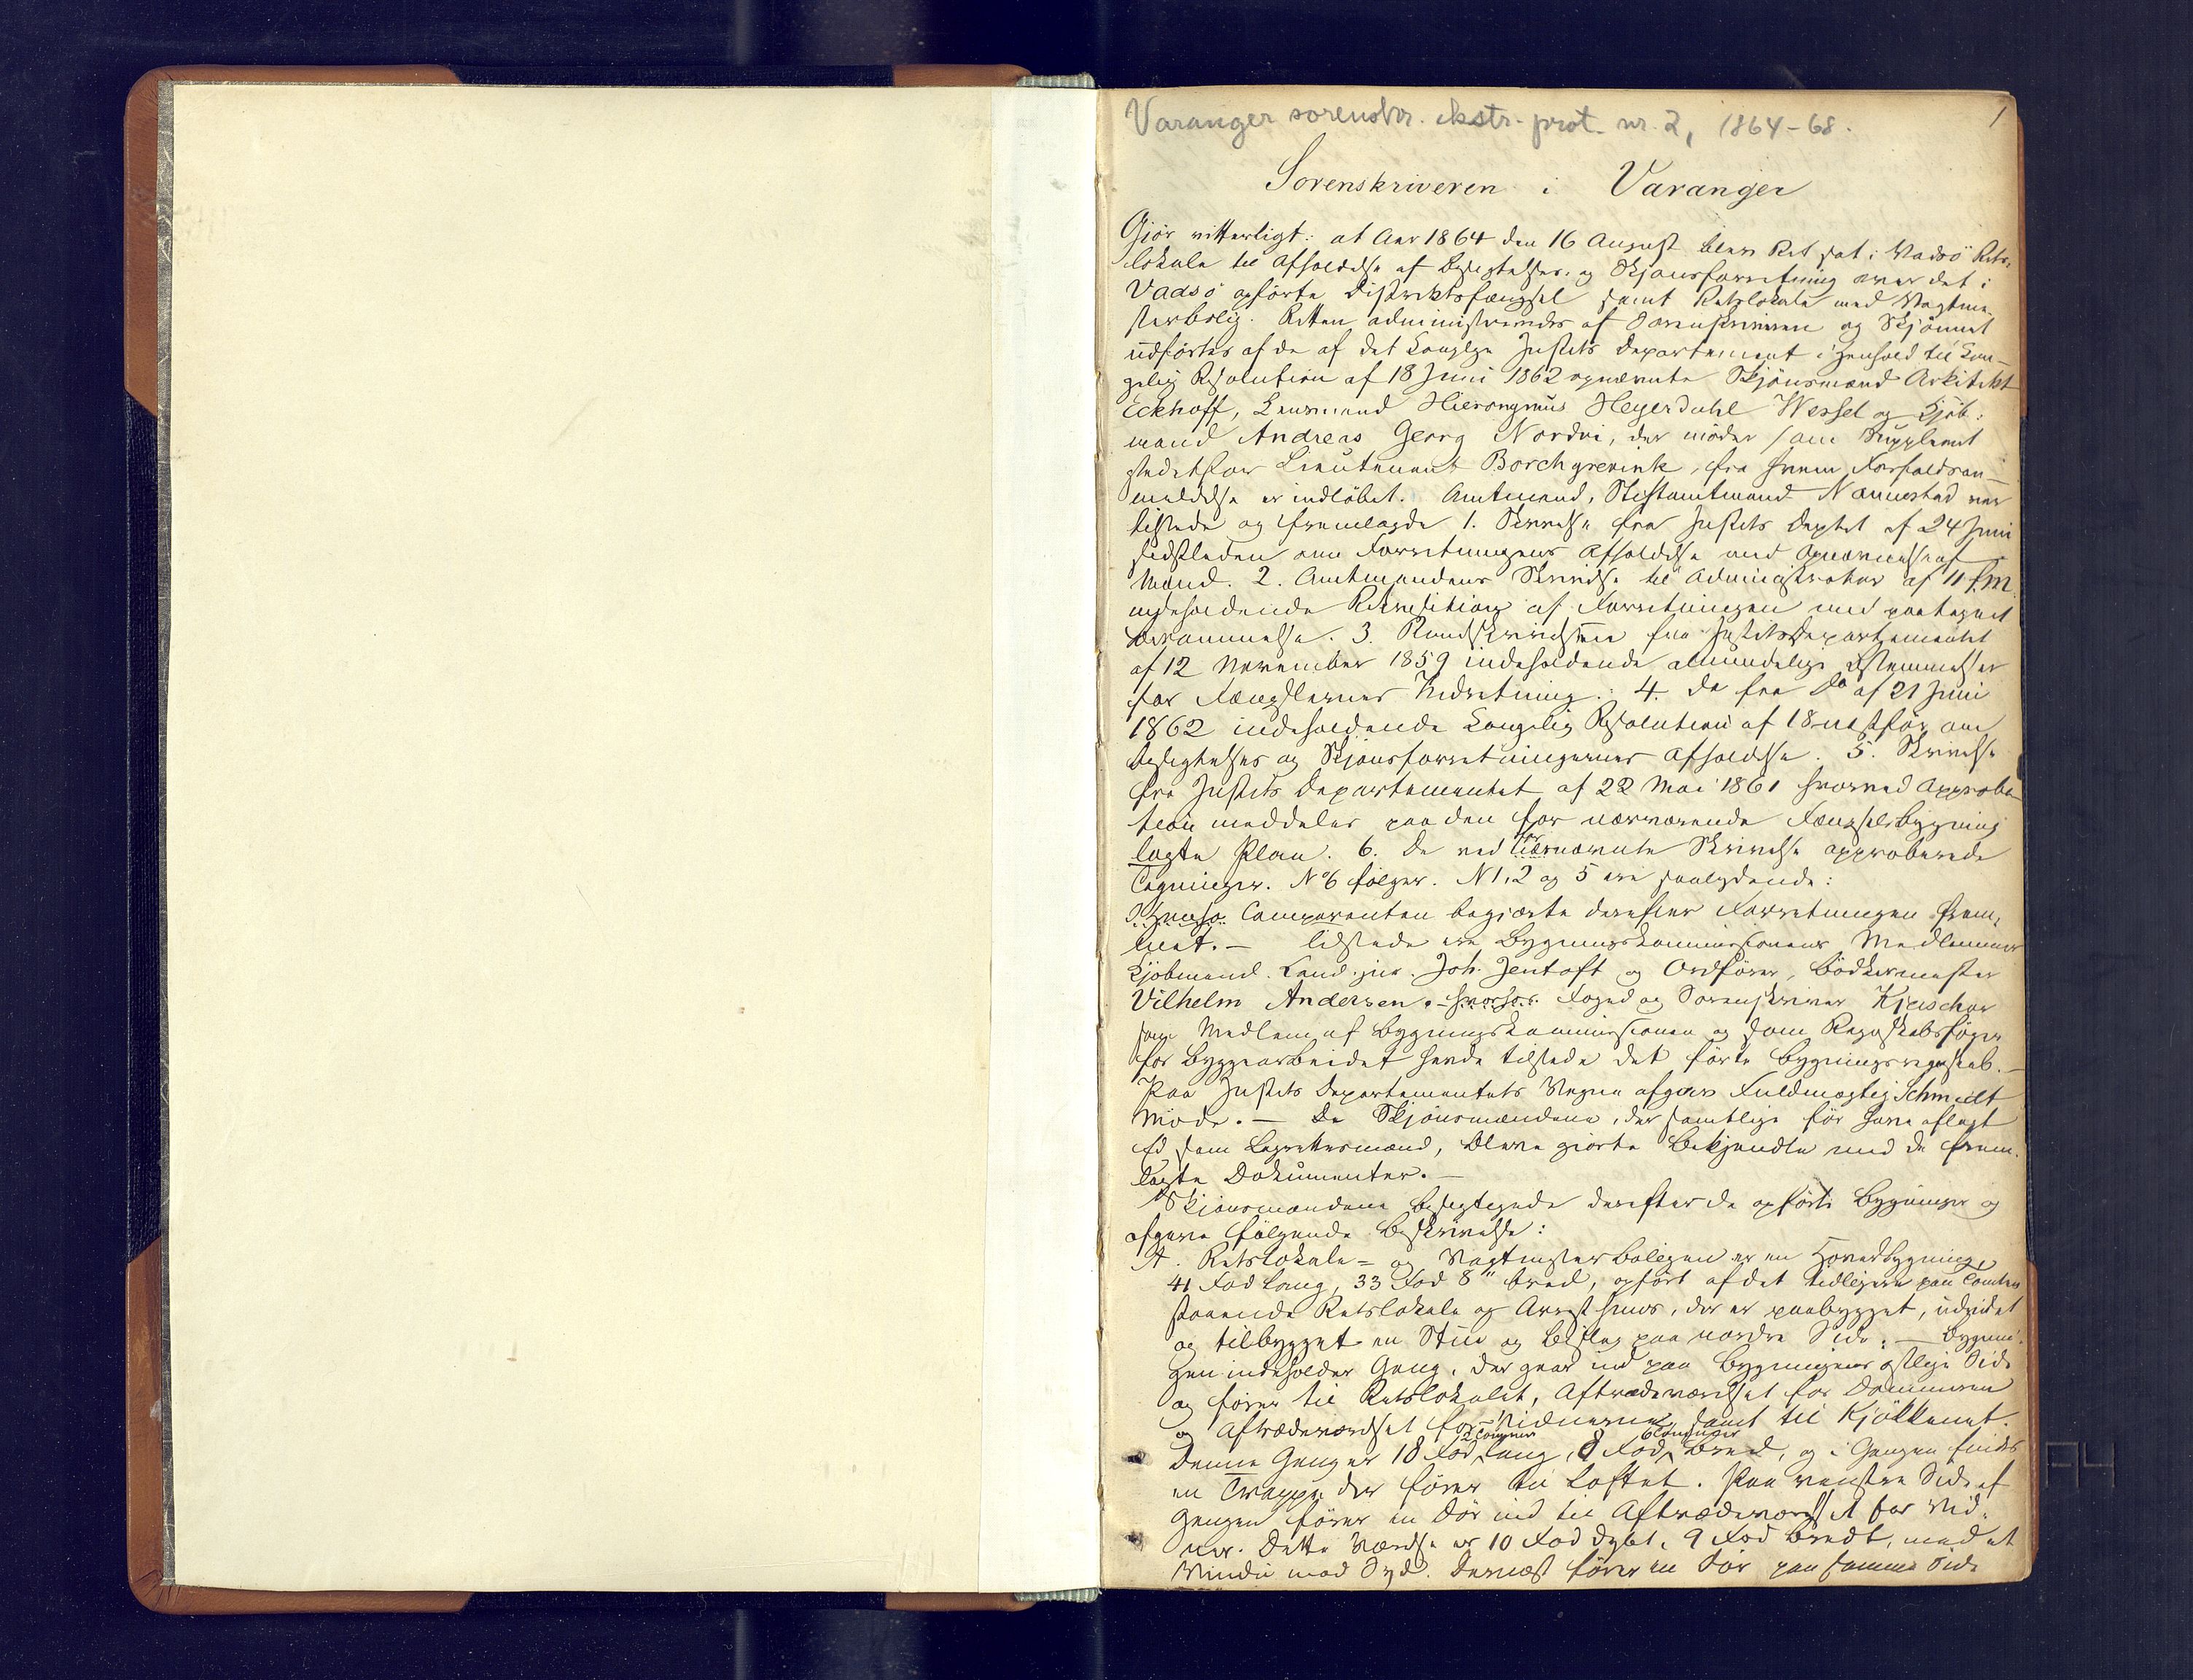 Varanger sorenskr. ekstr. prot. nr. 2, 1864-68.
1
Sorenskriveren i Varanger
Gjör vitterligt: at Aar 1864 den 16 August blev Ret sat i Vadsö Rets-
lokale til Afholdelse af Besigtelses- og Skjönsforretning over det i
Vadsö opförte Distriktsfængsel samt Retslokale med Vagtme-
sterbolig. Retten administreredes af Sorenskriveren og Skjönnet
udförtes af de af det Kongelige Justits Departement i Henhold til Kon-
gelig Resolution af 18 Juni 1862 opnævnte Skjönsmænd Arkitekt
Eckhoff, Lensmand Hieronymus Heyerdahl Wessel og Kjöb-
mand Andreas Georg Nordvi, der möder som Suppleant
istedetfor Lieutenant Borchgrevink, fra hvem Forfaldsan-
meldelse er indlöbet. Amtmand, Stiftamtmand Nannestad var
tilstede og fremlagde 1. Skrivelse fra Justits Deptet af 24 Juni
sidstleden om Forretningens Afholdelse med Opnævnelse af
Mænd. 2. Amtmandens Skrivelse til Administrator af 11 f.M.
indeholdende Rekvisition af Forretningen med paategnet
Berammelse. 3. Rundskrivelse fra Justitsdepartementet
af 12 November 1859 indeholdende almindelige Bestemmelser
for Fængslernes Indretning. 4. do fra do af 21 Juni
1862 indeholdende Kongelig Resolution af 18 næstför om
Besigtelses og Skjönsforretningernes Afholdelse. 5. Skrivelse
fra Justits Departementet af 22 Mai 1861 hvorved Approba-
tion meddeles paa den for nærværende Fængselsbygning
lagte Plan. 6. De ved nævnte Skrivelse approberede
Tegninger. No 6 fölger. N 1, 2 og 5 ere saalydende:
Comparenten begjærte derefter Forretningen frem-
met. — Tilstede ere Bygningskommissionens Medlemmer
Kjöbmand Cand. jur. Joh. Jentoft og Ordförer, Bödkermester
Vilhelm Andersen. — Foged og Sorenskriver Kjerschow
som Medlem af Bygningskommissionen og som Regnskabsförer
for Byggearbeidet havde tilstede det förte Bygningsregnskab. —
Paa Justits Departementets Vegne afgav Fuldmægtig Schmidt
Möde. — De Skjönsmændene, der samtlige för have aflagt
Ed som Lagrettesmænd, bleve gjorte bekjendte med de frem-
lagte Dokumenter. —
Skjönsmændene besigtigede derefter de opförte Bygninger og
afgave fölgende Beskrivelse:
A. Retslokale- og Vagtmesterboligen er en Hovedbygning,
41 Fod lang, 33 Fod 8" bred, opfört af det tidligere paa Tomten
staaende Retslokale og Arresthuus, der er paabygget, udvidet
og tilbygget en Stue og Bislag paa nordre Side. — Bygnin-
gen indeholder Gang, der gaar ind paa Bygningens östlige Side
og förer til Retslokalet, Aftrædeværelset for Dommeren
og Aftrædeværelset for Vidnerne, samt til Kjökkenet.
Denne Gang er 18 Fod 2 Tommer lang, 8 Fod 6 Tommer bred, og i Gangen findes
en Trappe der förer til Loftet. Paa venstre Side af
Gangen förer en Dör ind til Aftrædeværelset for Vid-
ner. Dette Værelse er 10 Fod dybt, 9 Fod bredt, med et
Vindu mod Syd. Dernæst förer en Dör paa samme Side